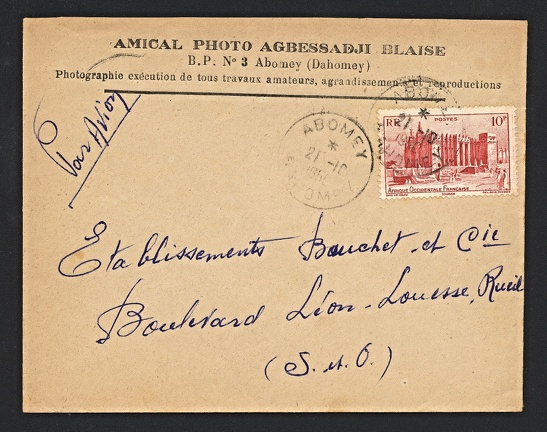 AMICAL PHOTO AGBESSADJI BLAISE
B.P. Nº 3 Abomey (Dahomey)
Photographie exécution de tous travaux amateurs, agrandissements et reproductions
Par Avion
ABOMEY
21 -10
RF POSTES 10F
AFRIQUE OCCIDENTALE FRANÇAISE
Etablissements Bauchet et Cie
Boulevard Léon-Louesse, Rueil
(S. et O.)